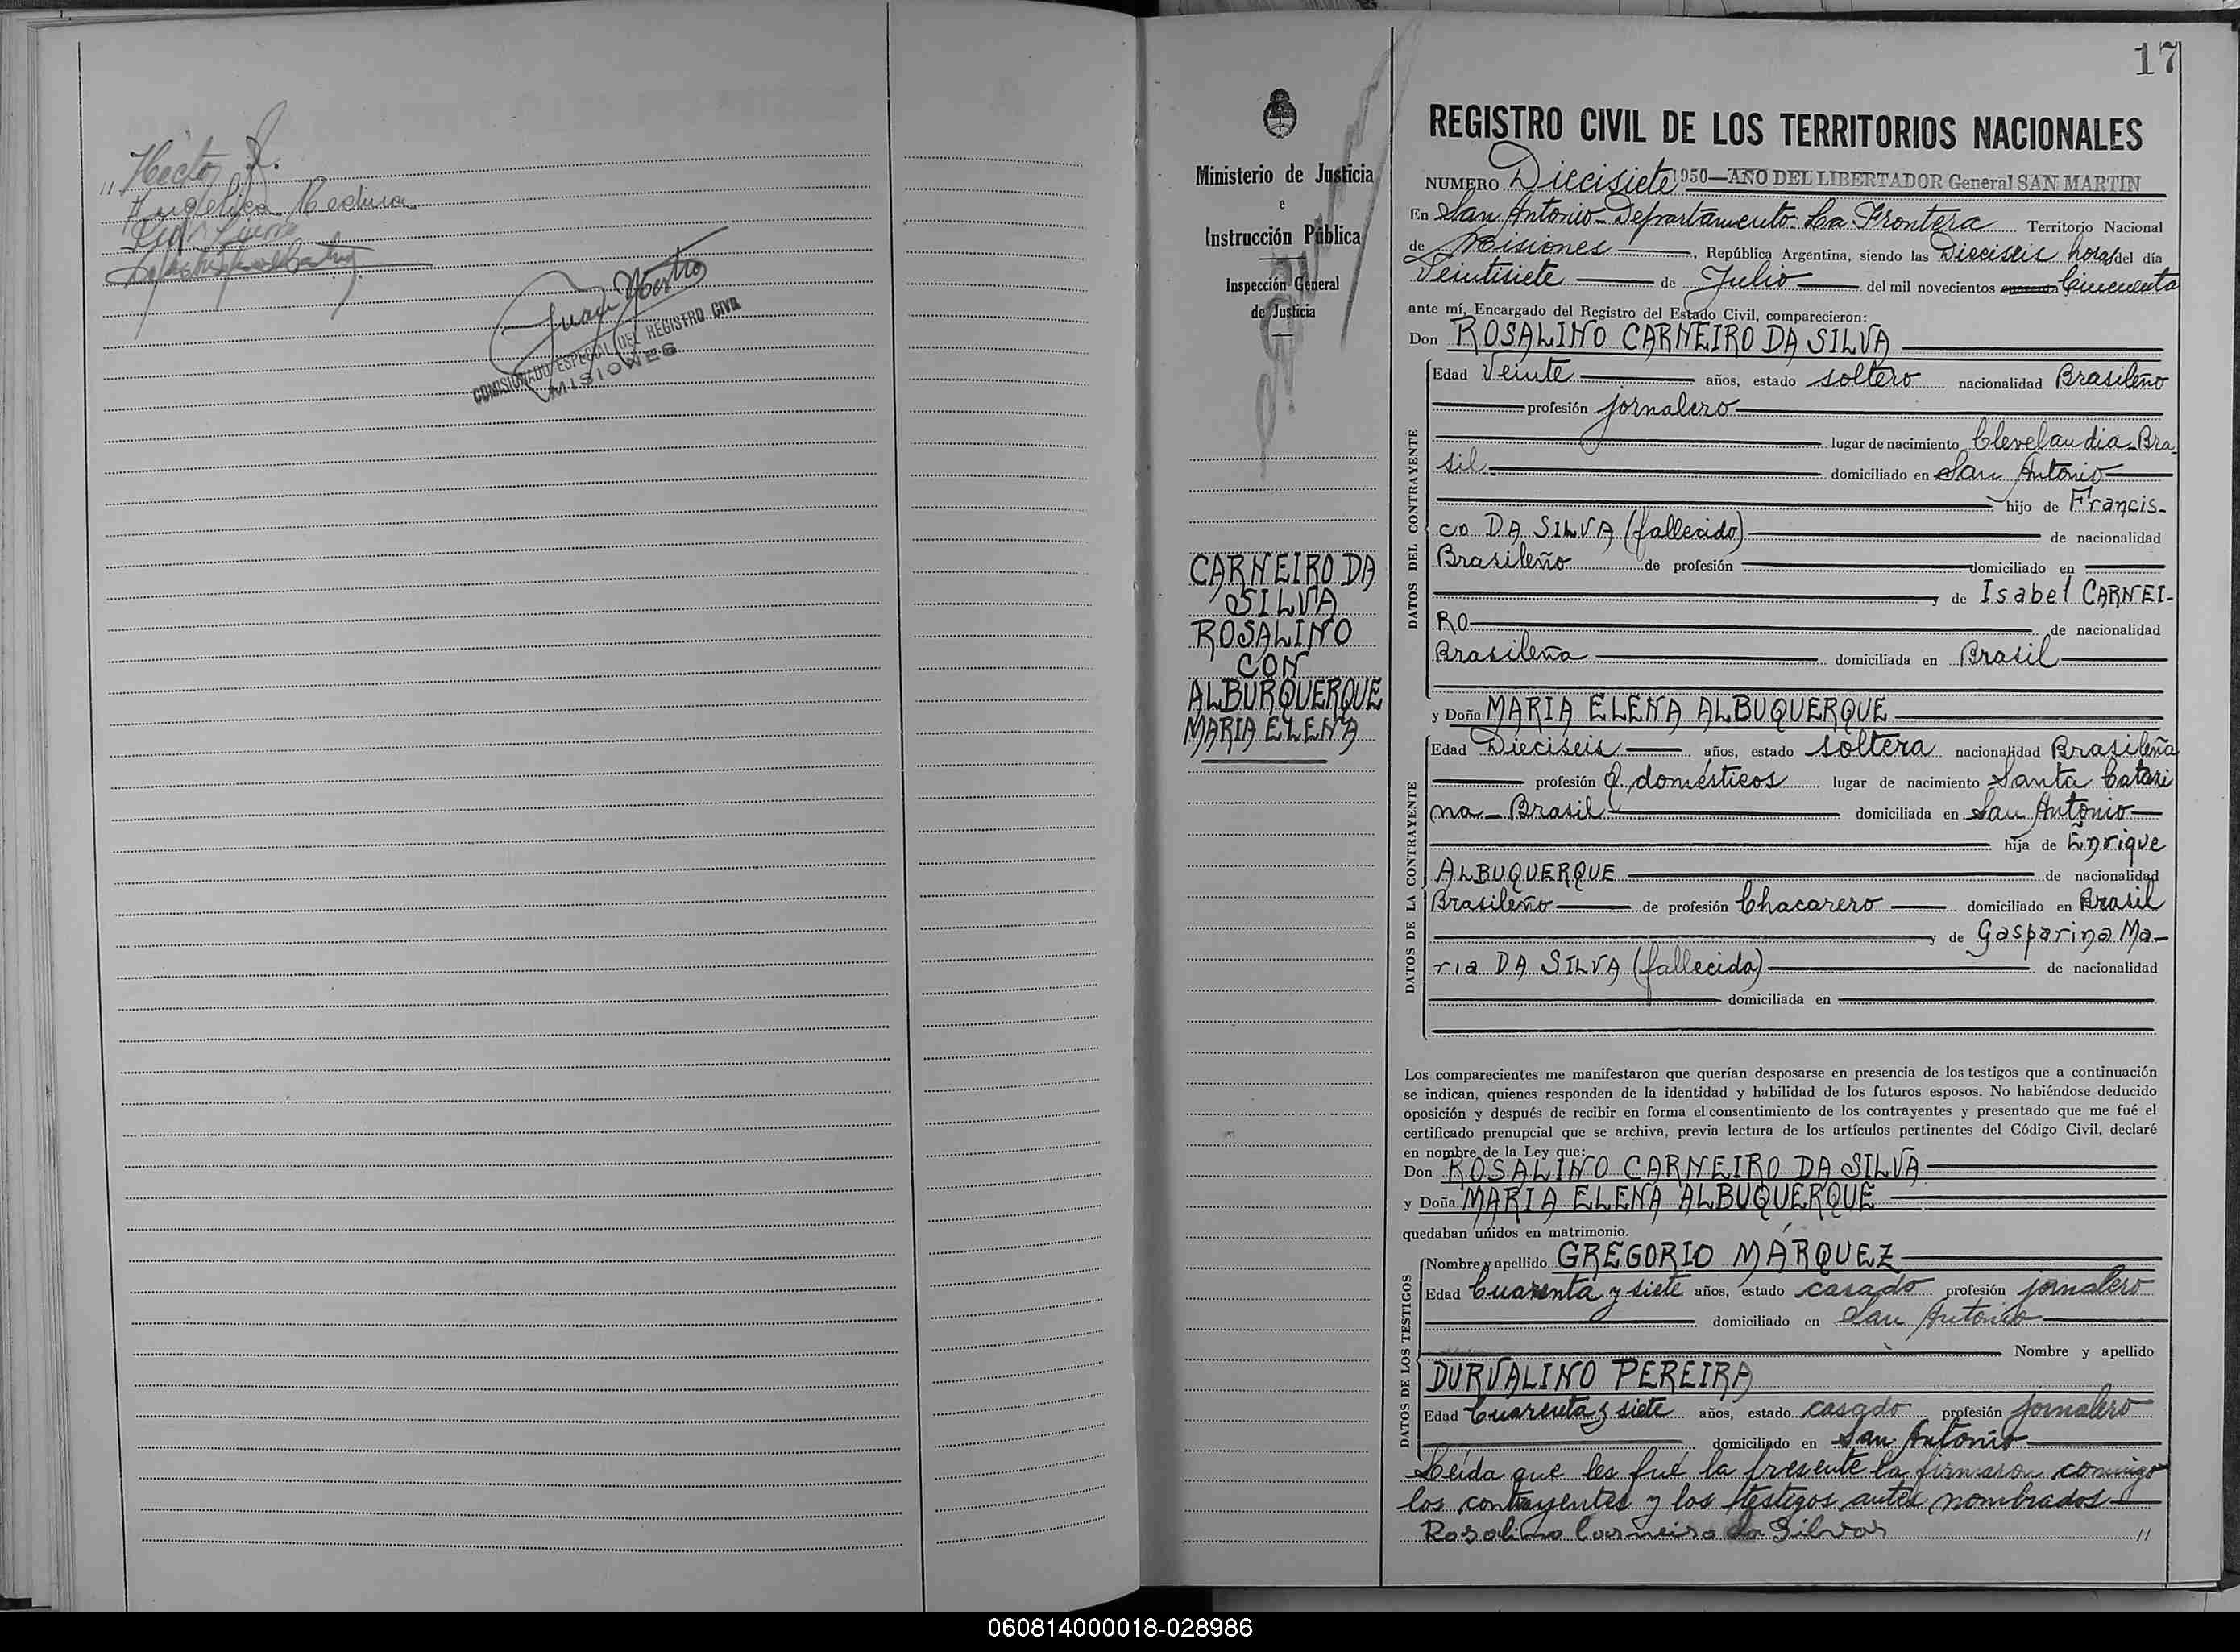 " Hector
Angelica Medina
Juan
COMISIONADO ESPECIAL DEL REGISTRO CIVIL
MISIONES
17
Ministerio de Justicia
e
Instrucción Pública
Inspección General
de Justicia
CARNEIRO DA
SILVA
ROSALINO
CON
ALBURQUERQUE
MARIA ELENA
REGISTRO CIVIL DE LOS TERRITORIOS NACIONALES
NUMERO Diecisiete 1950—AÑO DEL LIBERTADOR General SAN MARTIN
En San Antonio - Departamento La Frontera Territorio Nacional
de Misiones, República Argentina, siendo las Dieciseis horas del día
Veintisiete de Julio del mil novecientos cuarenta Cincuenta
ante mí, Encargado del Registro del Estado Civil, comparecieron:
Don ROSALINO CARNEIRO DA SILVA
DATOS DEL CONTRAYENTE
Edad Veinte años, estado soltero nacionalidad Brasileño
profesión jornalero
lugar de nacimiento Clevelandia - Bra
sil domiciliado en San Antonio
hijo de Francis-
co DA SILVA (fallecido) de nacionalidad
Brasileño de profesión domiciliado en
y de Isabel CARNEI-
RO de nacionalidad
Brasileña domiciliada en Brasil
y Doña MARIA ELENA ALBUQUERQUE
DATOS DE LA CONTRAYENTE
Edad Dieciseis años, estado soltera nacionalidad Brasileña
profesión Q. domésticos lugar de nacimiento Santa Catari
na - Brasil domiciliada en San Antonio
hija de Enrique
ALBUQUERQUE de nacionalidad
Brasileño de profesión Chacarero domiciliado en Brasil
y de Gasparina Ma-
ria DA SILVA (fallecida) de nacionalidad
domiciliada en
Los comparecientes me manifestaron que querían desposarse en presencia de los testigos que a continuación
se indican, quienes responden de la identidad y habilidad de los futuros esposos. No habiéndose deducido
oposición y después de recibir en forma el consentimiento de los contrayentes y presentado que me fué el
certificado prenupcial que se archiva, previa lectura de los artículos pertinentes del Código Civil, declaré
en nombre de la Ley que:
Don ROSALINO CARNEIRO DA SILVA
y Doña MARIA ELENA ALBUQUERQUE
quedaban unidos en matrimonio.
DATOS DE LOS TESTIGOS
Nombre y apellido GREGORIO MÁRQUEZ
Edad Cuarenta y siete años, estado casado profesión jornalero
domiciliado en San Antonio
Nombre y apellido
DURVALINO PEREIRA
Edad Cuarenta y siete años, estado casado profesión jornalero
domiciliado en San Antonio
Leída que les fué la presente la firmaron conmigo
los contrayentes y los testigos antes nombrados
Rosalino Carneiro da Silva "
060814000018-028986